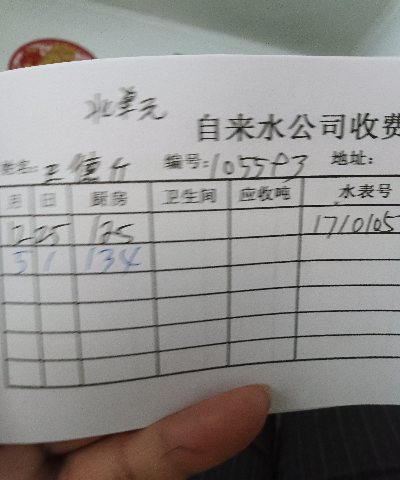 北单元
自来水公司收费
姓名: 王健行 编号: 1055P3 地址:
月 日 厨房 卫生间 应收吨 水表号
2 25 125 1710105
5 1 134